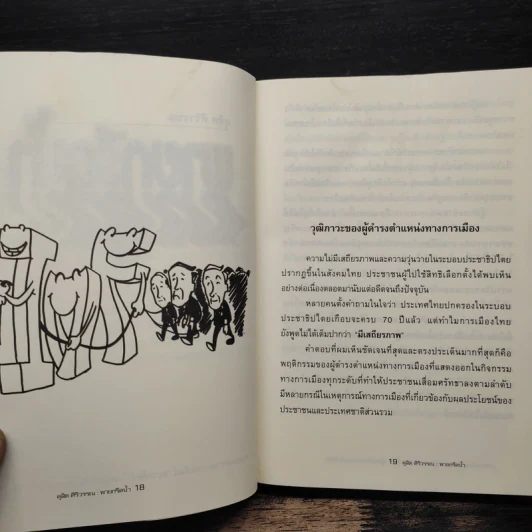 ดุสิต ศิริวรรณ : พายเรือในอ่าง 18
วุฒิภาวะของผู้ดำรงตำแหน่งทางการเมือง
ความไม่มีเสถียรภาพและความวุ่นวายในระบอบประชาธิปไตย
ปรากฏขึ้นในสังคมไทย ประชาชนผู้ไปใช้สิทธิเลือกตั้งได้พบเห็น
อย่างต่อเนื่องตลอดมานับแต่อดีตจนถึงปัจจุบัน
หลายคนตั้งคำถามในใจว่า ประเทศไทยปกครองในระบอบ
ประชาธิปไตยเกือบจะครบ 70 ปีแล้ว แต่ทำไมการเมืองไทย
ยังพูดไม่ได้เต็มปากว่า "มีเสถียรภาพ"
คำตอบที่ผมเห็นชัดเจนที่สุดและตรงประเด็นมากที่สุดก็คือ
พฤติกรรมของผู้ดำรงตำแหน่งทางการเมืองที่แสดงออกในกิจกรรม
ทางการเมืองทุกระดับที่ทำให้ประชาชนเสื่อมศรัทธาลงตามลำดับ
มีหลายกรณีในเหตุการณ์ทางการเมืองที่เกี่ยวข้องกับผลประโยชน์ของ
ประชาชนและประเทศชาติส่วนรวม
19 ดุสิต ศิริวรรณ :